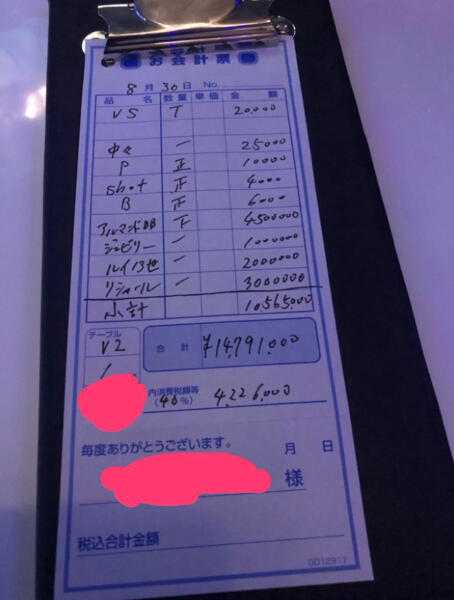 お会計票
8月30日 No.
品名 数量 単価 金額
VS T 20.000
中々 一 25000
P 正 10000
shot 正 4000
B 正 6000
アルマンド 下 4500000
ジュビリー 一 1000000
ルイ13世 一 2000000
リシャール 一 3000000
小計 10565000
テーブル
V2
合計 ¥14,791,000
内消費税額等
(40%) 4,226,000
毎度ありがとうございます。 月 日
様
税込合計金額
0D12917